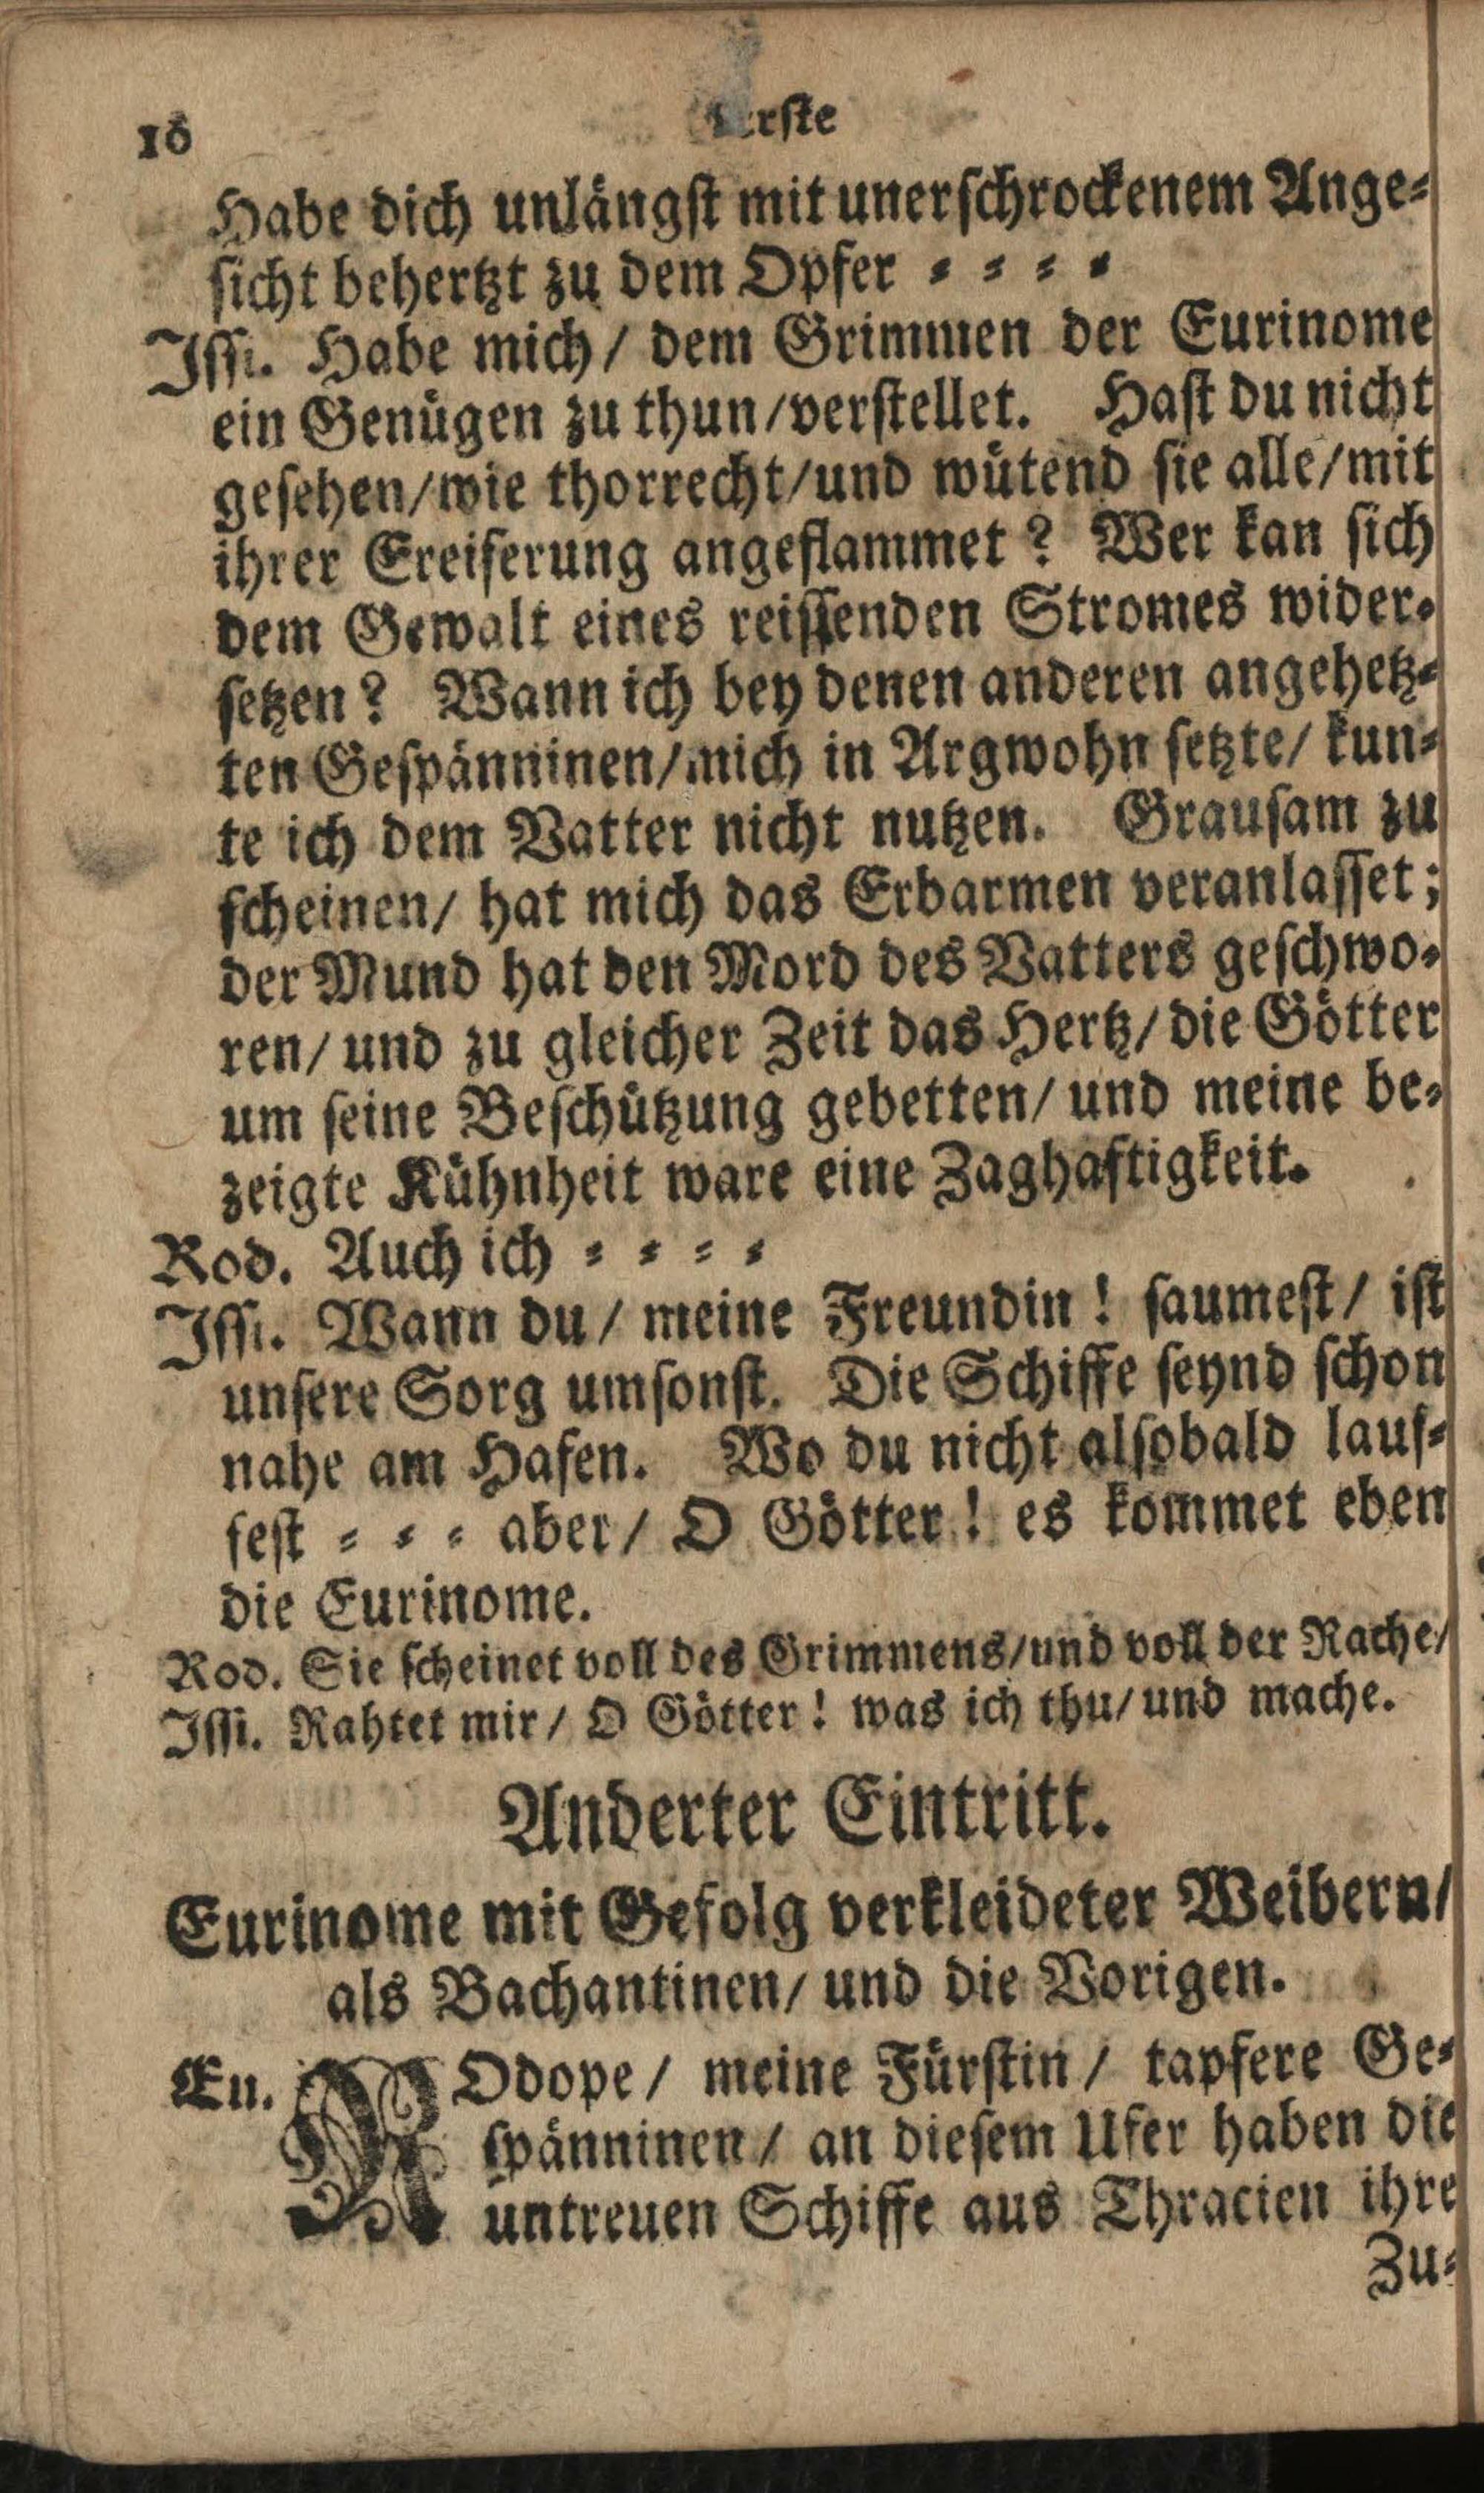 16
Erste
Habe dich unlängst mit unerschrockenem Ange-
sicht behertzt zu dem Opfer - - - -
Issi. Habe mich / dem Grimmen der Eurinome
ein Genügen zu thun / verstellet. Hast du nicht
gesehen / wie thorrecht / und wütend sie alle / mit
ihrer Ereiferung angeflammet ? Wer kan sich
dem Gewalt eines reissenden Stromes wider-
setzen ? Wann ich bey denen anderen angehetz-
ten Gespänninen / mich in Argwohn setzte / kun-
te ich dem Vatter nicht nutzen. Grausam zu
scheinen / hat mich das Erbarmen veranlasset ;
der Mund hat den Mord des Vatters geschwo-
ren / und zu gleicher Zeit das Hertz / die Götter
um seine Beschützung gebetten / und meine be-
zeigte Kühnheit ware eine Zaghaftigkeit.
Rod. Auch ich - - - -
Issi. Wann du / meine Freundin ! saumest / ist
unsere Sorg umsonst. Die Schiffe seynd schon
nahe am Hafen. Wo du nicht alsobald lauf-
fest - - - aber / O Götter ! es kommet eben
die Eurinome.
Rod. Sie scheinet voll des Grimmens / und voll der Rache /
Issi. Rahtet mir / O Götter ! was ich thu / und mache.
Anderter Eintritt.
Eurinome mit Gefolg verkleideter Weibern /
als Bachantinen / und die Vorigen.
Eu. ROdope / meine Fürstin / tapfere Ge-
spänninen / an diesem Ufer haben die
untreuen Schiffe aus Thracien ihre
Zu-